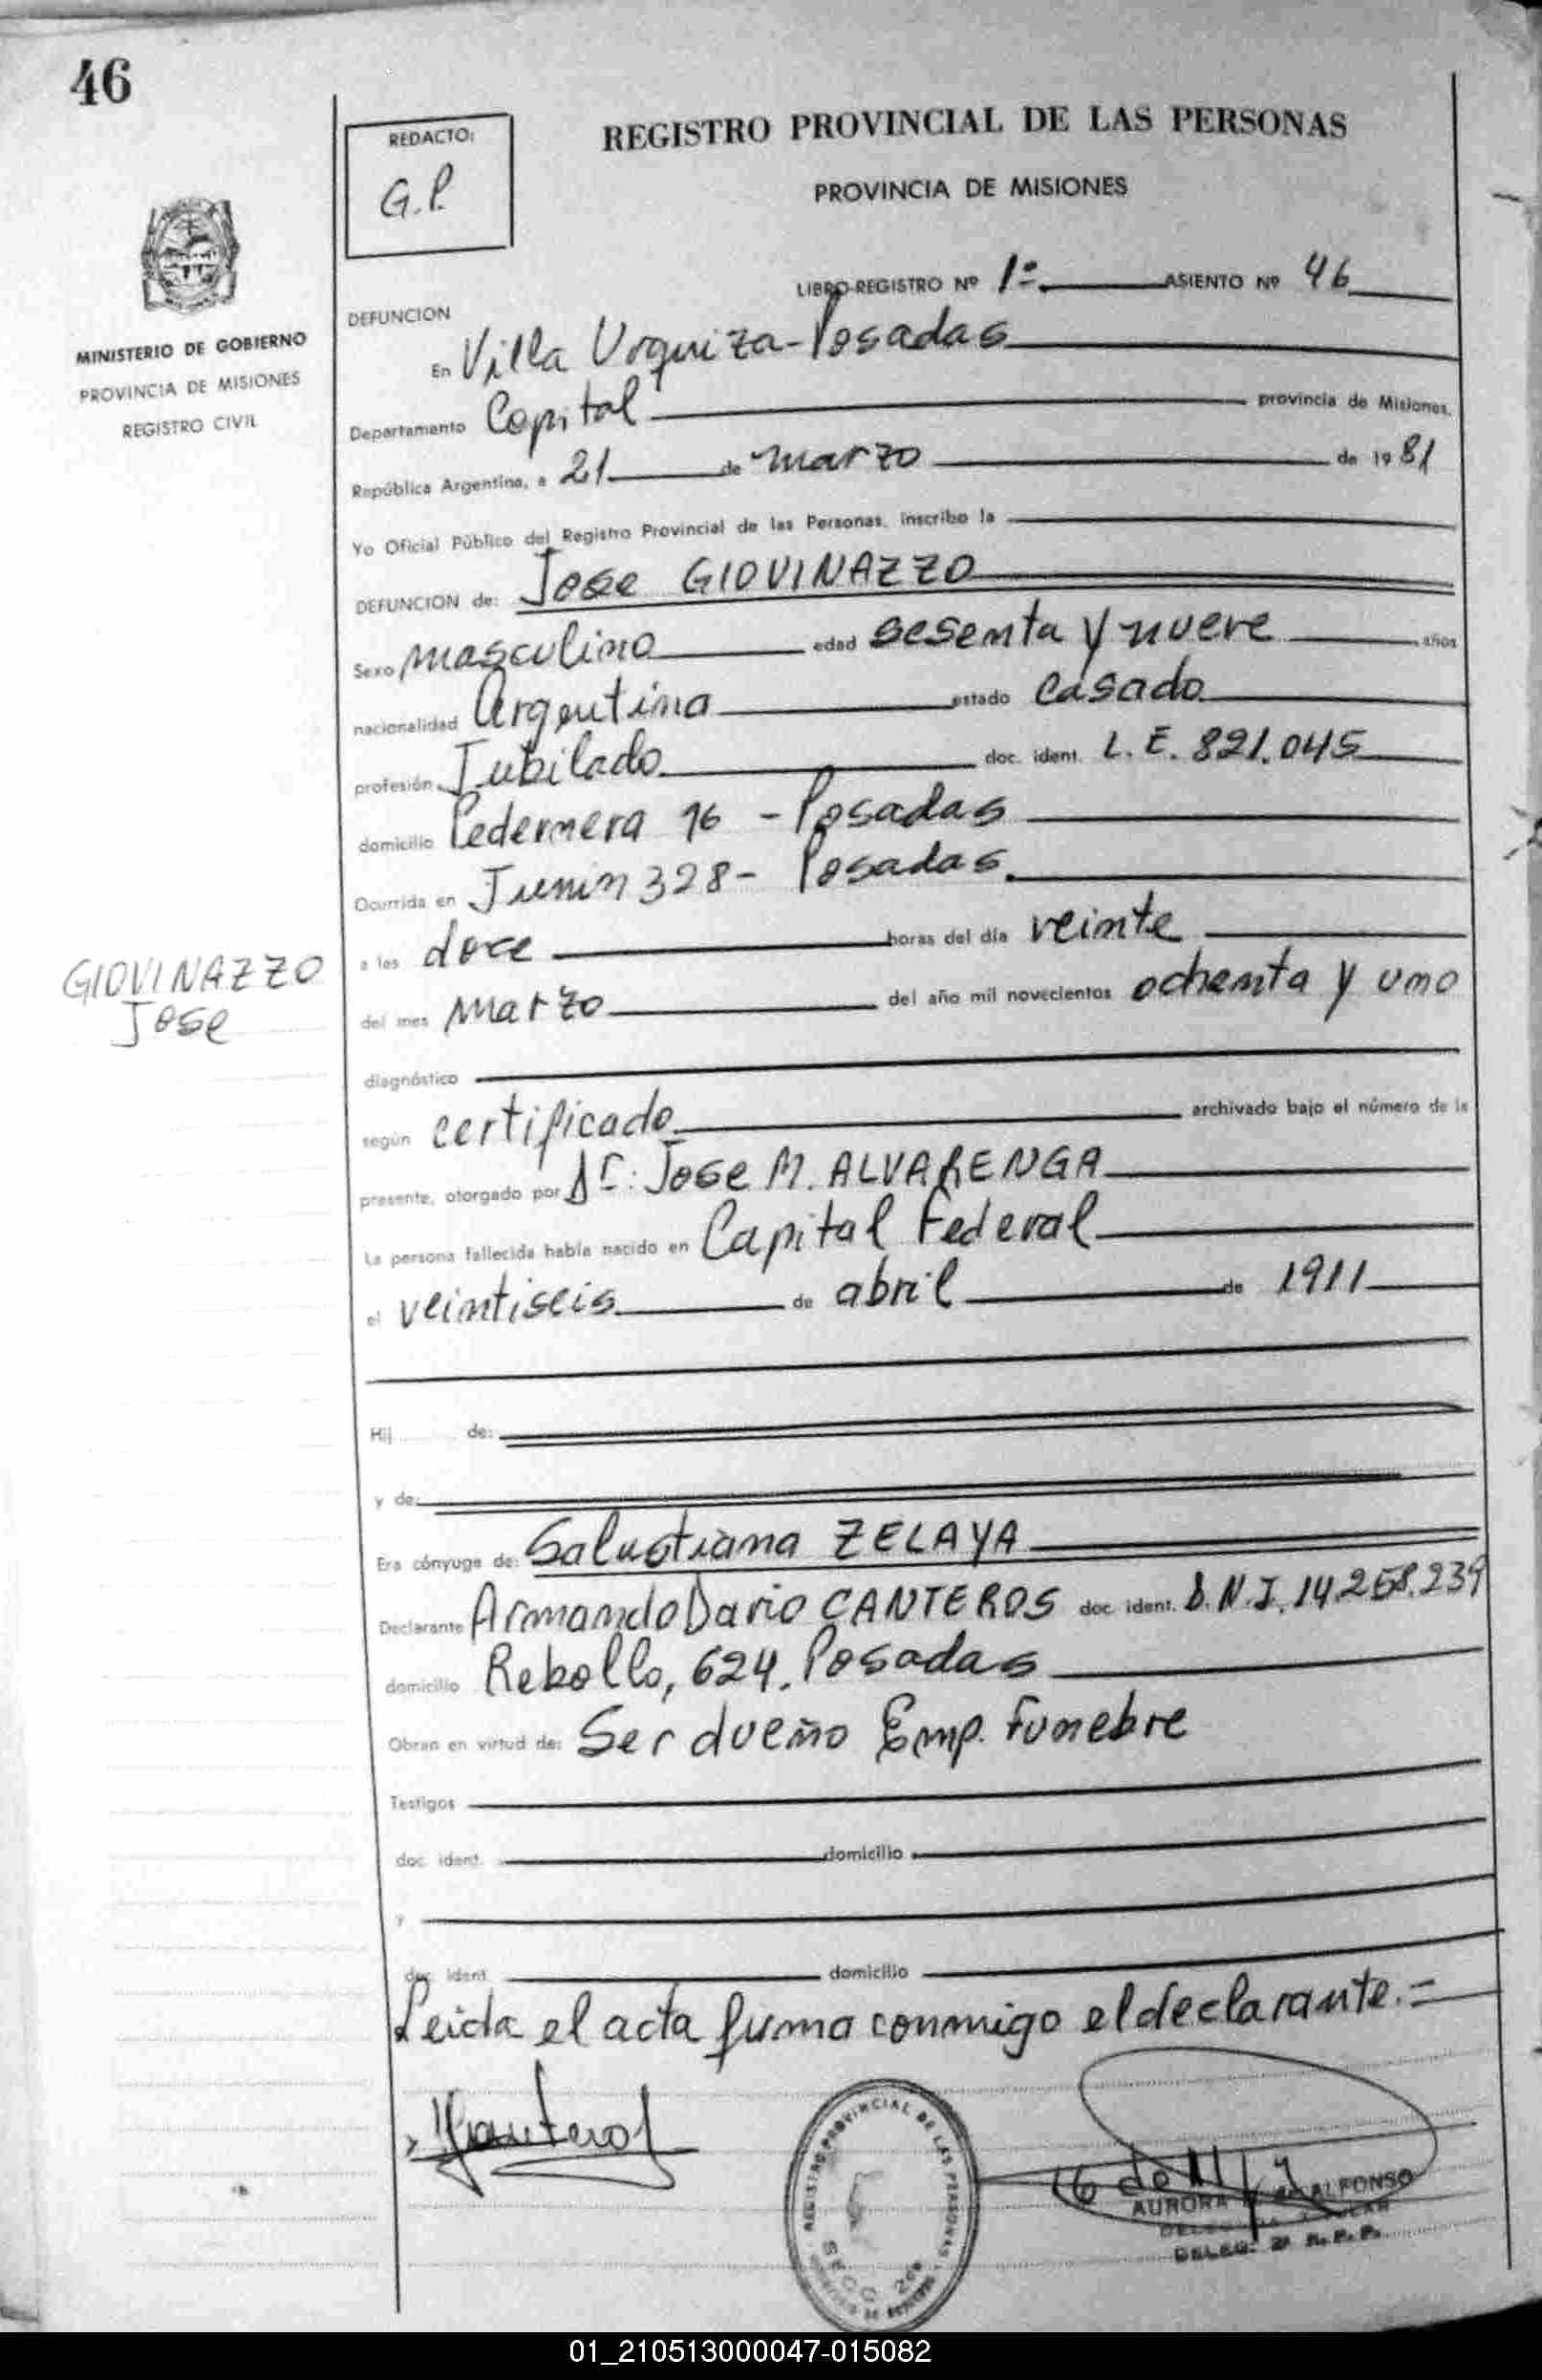 46
REDACTO:
G.P.
REGISTRO PROVINCIAL DE LAS PERSONAS
PROVINCIA DE MISIONES
MINISTERIO DE GOBIERNO
PROVINCIA DE MISIONES
REGISTRO CIVIL
LIBRO-REGISTRO Nº 1º ASIENTO Nº 46
DEFUNCION
En Villa Urquiza-Posadas
Departamento Capital provincia de Misiones,
República Argentina, a 21 de marzo de 1981
Yo Oficial Público del Registro Provincial de las Personas, inscribo la
DEFUNCION de: Jose GIOVINAZZO
Sexo masculino edad sesenta y nueve años
nacionalidad Argentina estado casado
profesión Jubilado doc. ident. L.E. 821.045
domicilio Pedernera 16 - Posadas
Ocurrida en Junin 328- Posadas.
a las doce horas del día veinte
GIOVINAZZO
Jose
del mes marzo del año mil novecientos ochenta y uno
diagnóstico
según certificado archivado bajo el número de la
presente, otorgado por Dr: Jose M. ALVARENGA
La persona fallecida había nacido en Capital Federal
el veintiseis de abril de 1911
Hij de:
y de:
Era cónyuge de: Salustiana ZELAYA
Declarante Armando Dario CANTEROS doc. ident. D.N.I. 14.258.239
domicilio Rebollo, 624. Posadas
Obran en virtud de: Ser dueño Emp. Funebre
Testigos
doc. ident. domicilio
y
doc. ident. domicilio
Leida el acta firma conmigo el declarante.=
REGISTRO PROVINCIAL DE LAS PERSONAS
AURORA ALFONSO
DELEG. 2ª R.P.P.
01_210513000047-015082